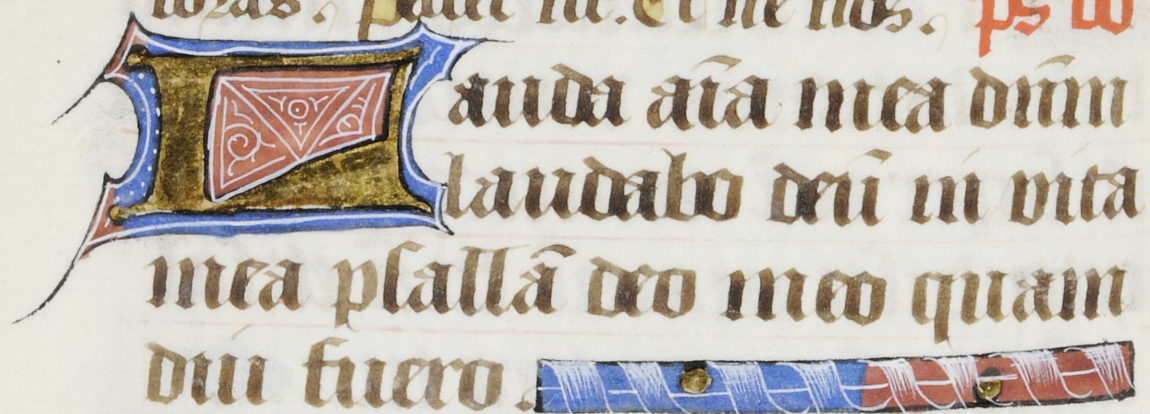 Pater nr. Et ne nos. ps dd
Lauda aīa mea dūm
laudabo deū in vita
mea psallā deo meo quam
diu fuero.